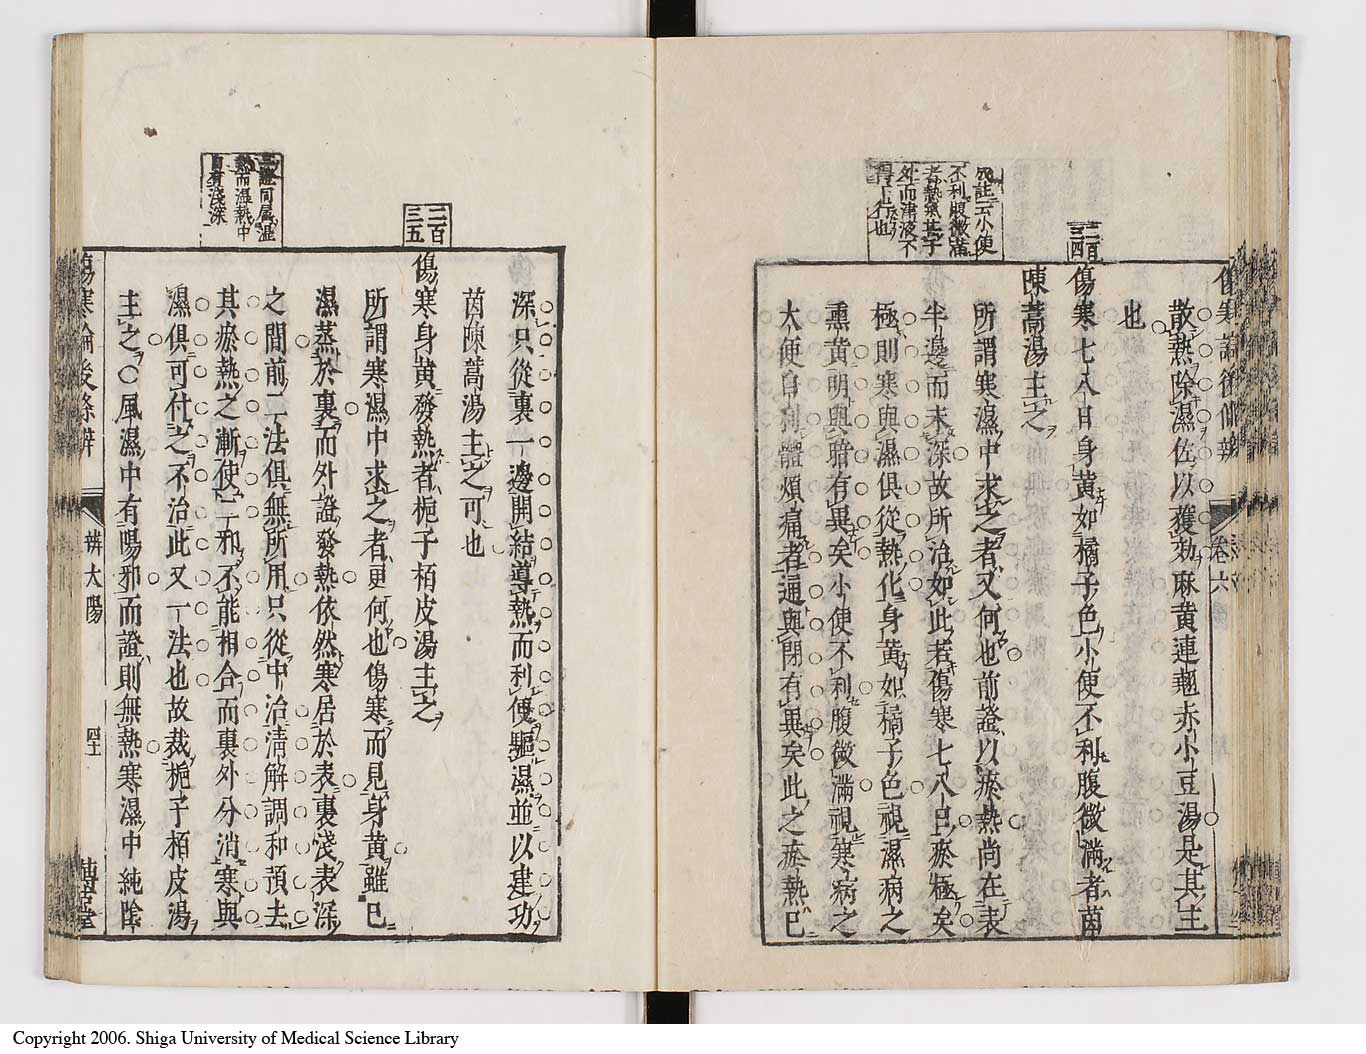 傷寒論後條辨
卷六
散熱除濕佐以獲効麻黃連翹赤小豆湯是其主
也
二百三四
傷寒七八日身黃如橘子色小便不利腹微滿者茵
陳蒿湯主之
成註云小便
不利腹微滿
者熱氣甚于
外而津液不
得下行也
所謂寒濕中求之者又何也前證以瘀熱尚在表
半邊而未深故所治如此若傷寒七八日瘀極矣
極則寒與濕俱從熱化身黃如橘子色視濕病之
熏黃明與暗有異矣小便不利腹微滿視寒病之
大便自利體煩痛者通與閉有異矣此之瘀熱已
深只從裏一邊開結導熱而利便驅濕並以建功
茵陳蒿湯主之可也
二百三五
傷寒身黃發熱者梔子栢皮湯主之
所謂寒濕中求之者更何也傷寒而見身黃雖已
濕蒸於裏而外證發熱依然寒居於表裏淺表深
之間前二法俱無所用只從中治清解調和預去
三證同屬濕
熱而濕熱中
自有淺深
其瘀熱之漸使二邪不能相合而裏外分消寒與
濕俱可付之不治此又一法也故裁梔子栢皮湯
主之○風濕中有陽邪而證則無熱寒濕中純陰
傷寒論後條辨
辨太陽
Copyright 2006. Shiga University of Medical Science Library